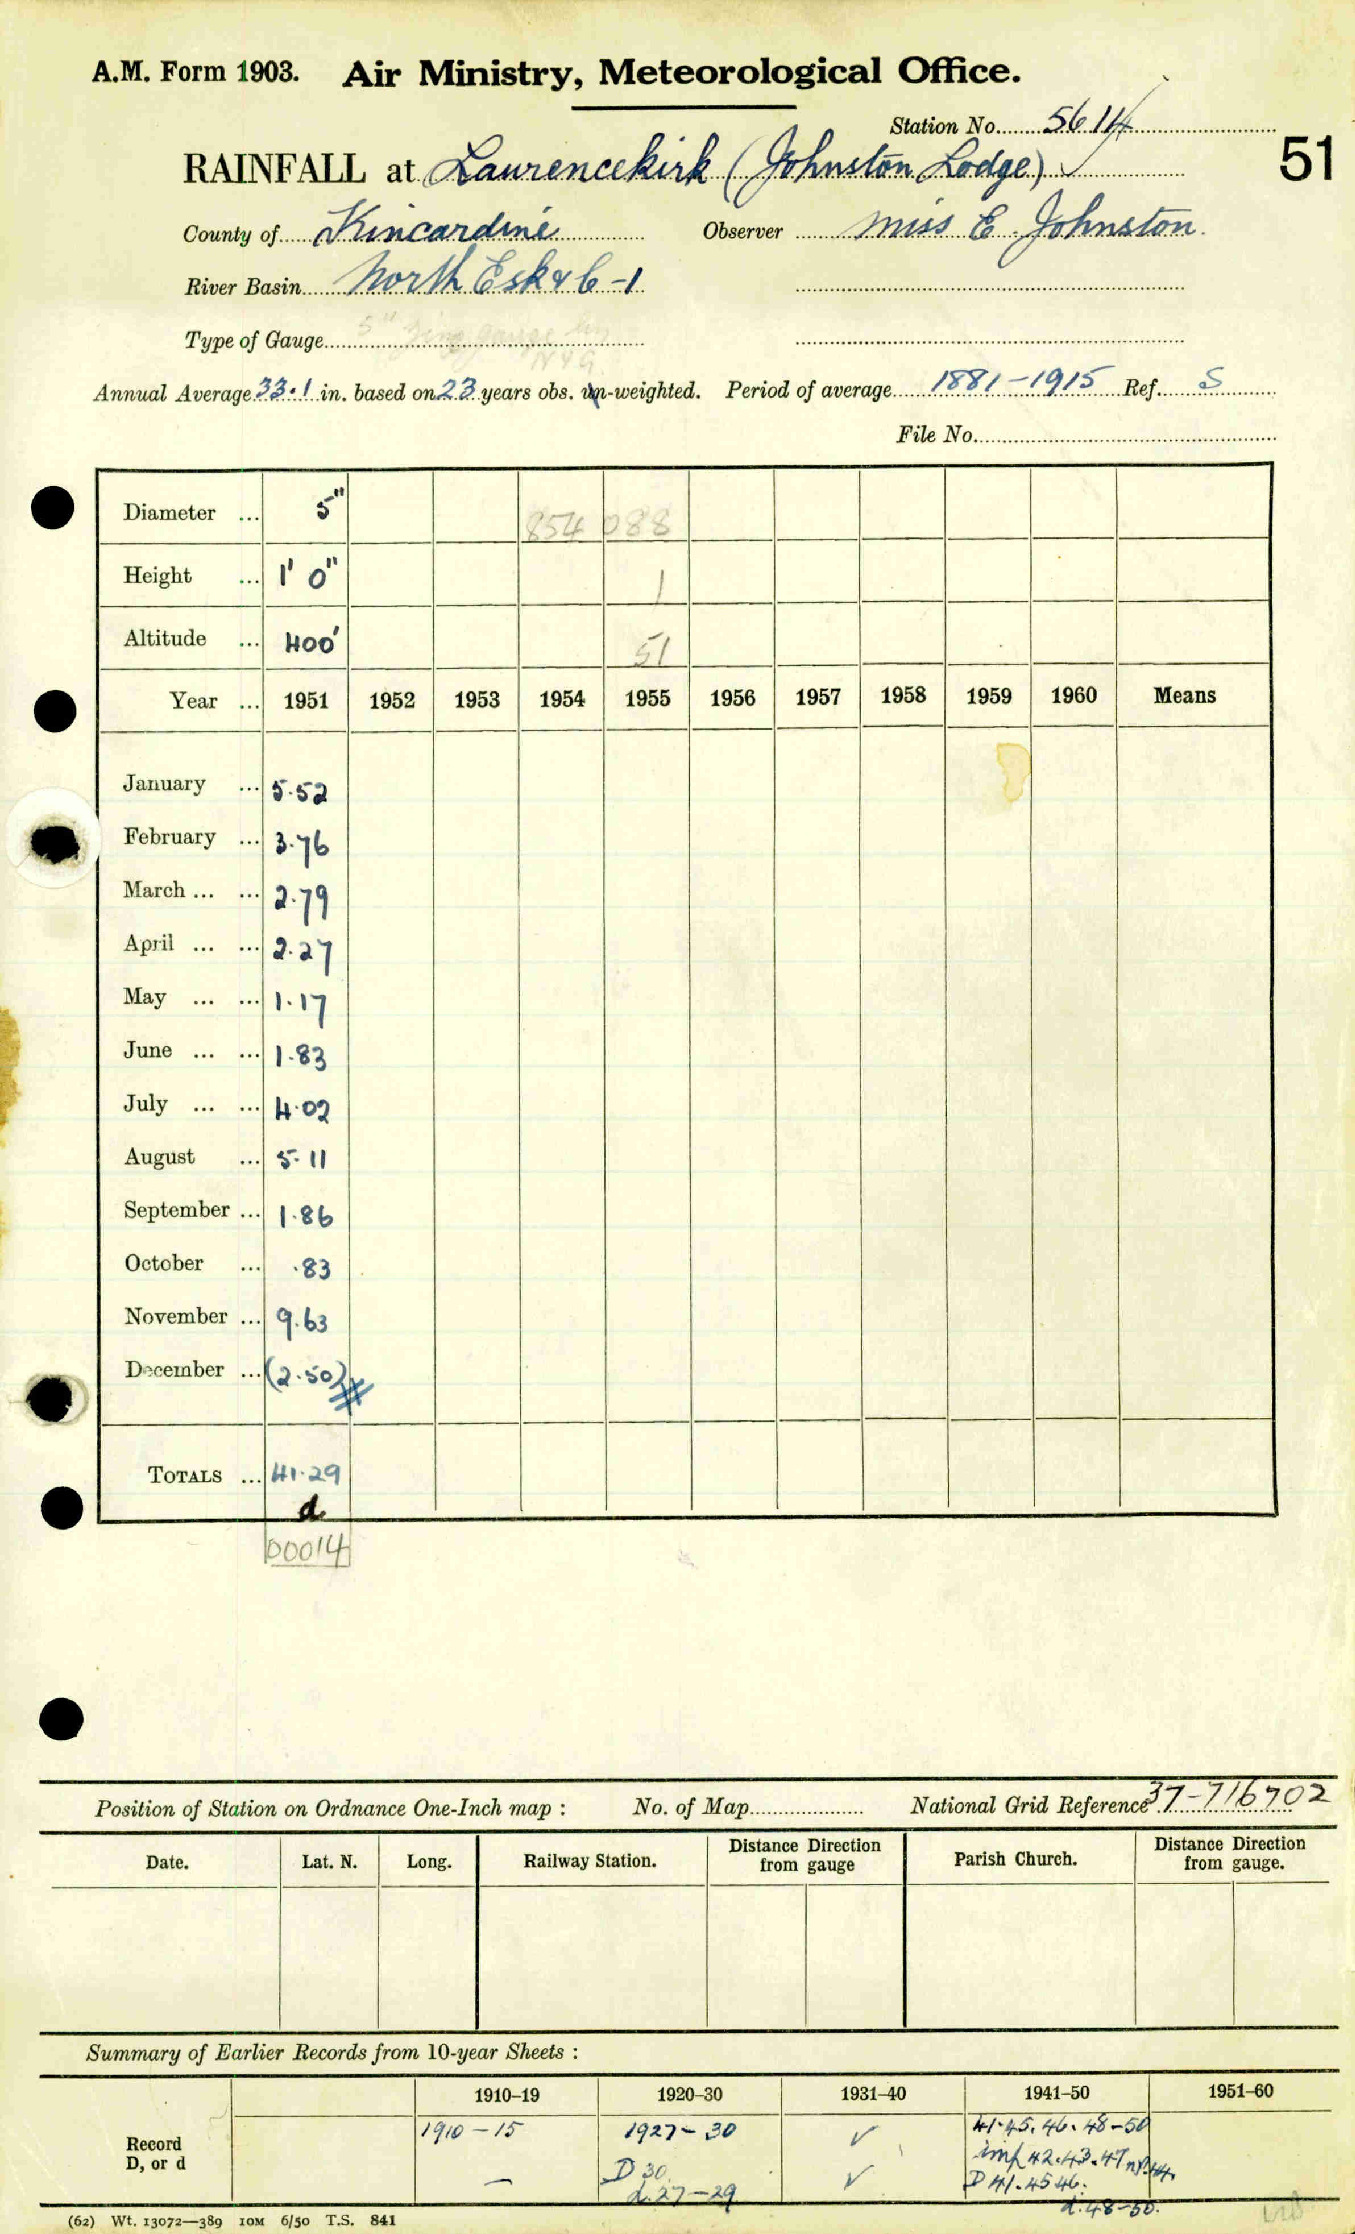 A.M. Form 1903. Air Ministry, Meteorological Office.
Station No. 5614
51
RAINFALL at Laurencekirk (Johnston Lodge) ✓
County of Kincardine Observer Miss E. Johnston.
River Basin North Esk & 6-1
Type of Gauge 5" gauge by
N & G.
Annual Average 33.1 in. based on 23 years obs. un-weighted. Period of average 1881-1915 Ref. S
File No.
Diameter ... 5" 854 088
Height ... 1' 0" 1
Altitude ... 400' 51
Year ... 1951 1952 1953 1954 1955 1956 1957 1958 1959 1960 Means
January ... 5.52
February ... 3.76
March ... ... 2.79
April ... ... 2.27
May ... ... 1.17
June ... ... 1.83
July ... ... 4.02
August ... 5.11
September ... 1.86
October ... .83
November ... 9.63
December ... (2.50) #
TOTALS ... 41.29
d
00014
Position of Station on Ordnance One-Inch map : No. of Map National Grid Reference 37-716702
Date. Lat. N. Long. Railway Station. Distance from gauge Direction Parish Church. Distance from gauge. Direction
Summary of Earlier Records from 10-year Sheets :
1910–19 1920–30 1931–40 1941–50 1951–60
Record 1910-15 1927-30 ✓ 41.45.46.48-50
imp 42.43.47 n/.44.
D, or d — D 30. ✓ D 41.45 46.
d. 27-29 d. 48-50.
(62) Wt. 13072—389 10M 6/50 T.S. 841